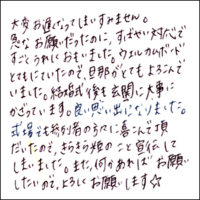 大変お遅くなってしまいすみません。
急なお願いだったのに、すばやい対応で
すごくうれしくおもいました。ウェルカムボード
とてもにていたので、旦那がとてもよろこんで
いました。結婚式後も玄関に大事に
かざっています。良い思い出になりました。
式場でも参列者の方々に喜んで頂
だいたので、きらきら姫のこと宣伝して
しまいました。また、何かあればお願い
したいので、よろしくお願いします☆